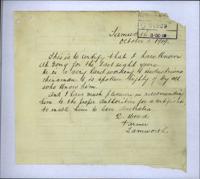 Tamworth
October 5 1909.
This is to certify that I have known
Ah Bong for the last eight years
he is a very hard working & industrious
Chinaman & is spoken highly of by all
who know him.
And I have much pleasure in recommending
him to the proper authorities for a certificate
to enable him to leave Australia
Wood
Farmer
Tamworth.